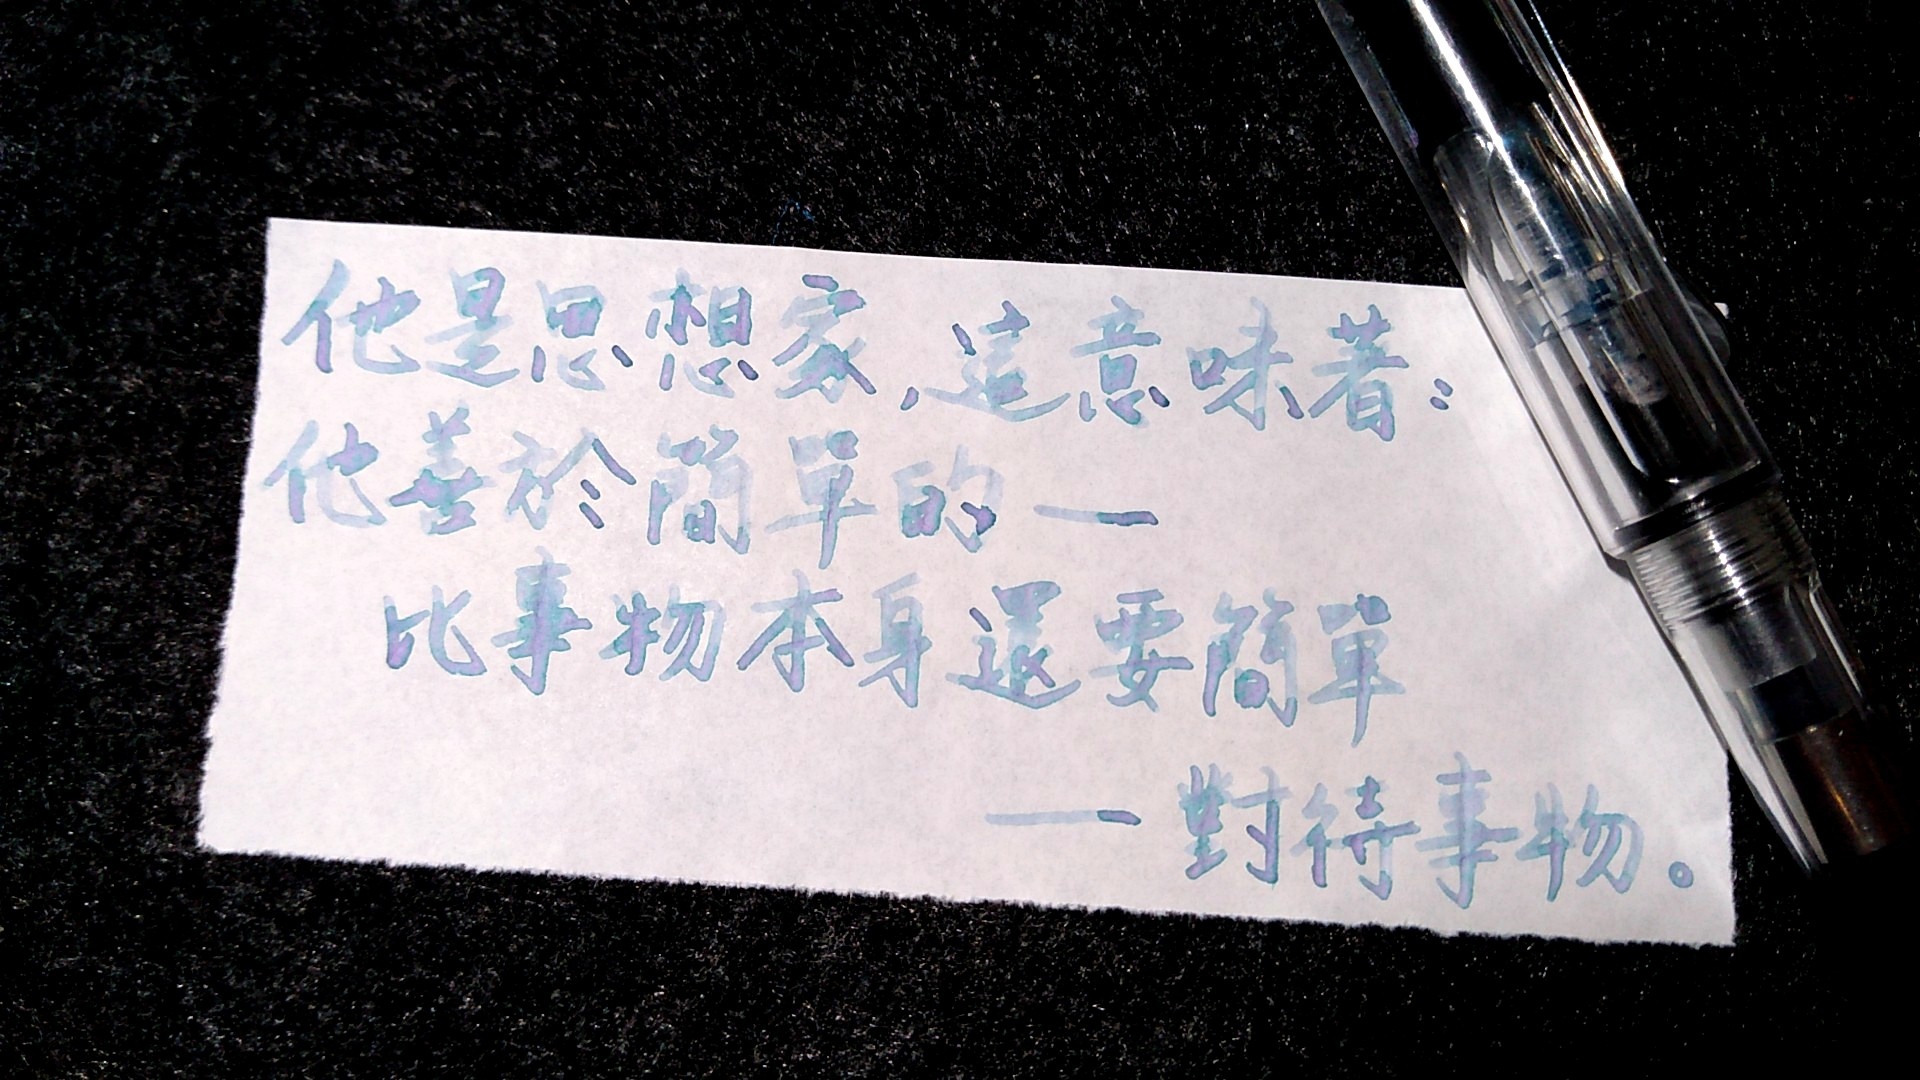 他是思想家,這意味著:
他善於簡單的—
比事物本身還要簡單
—對待事物。